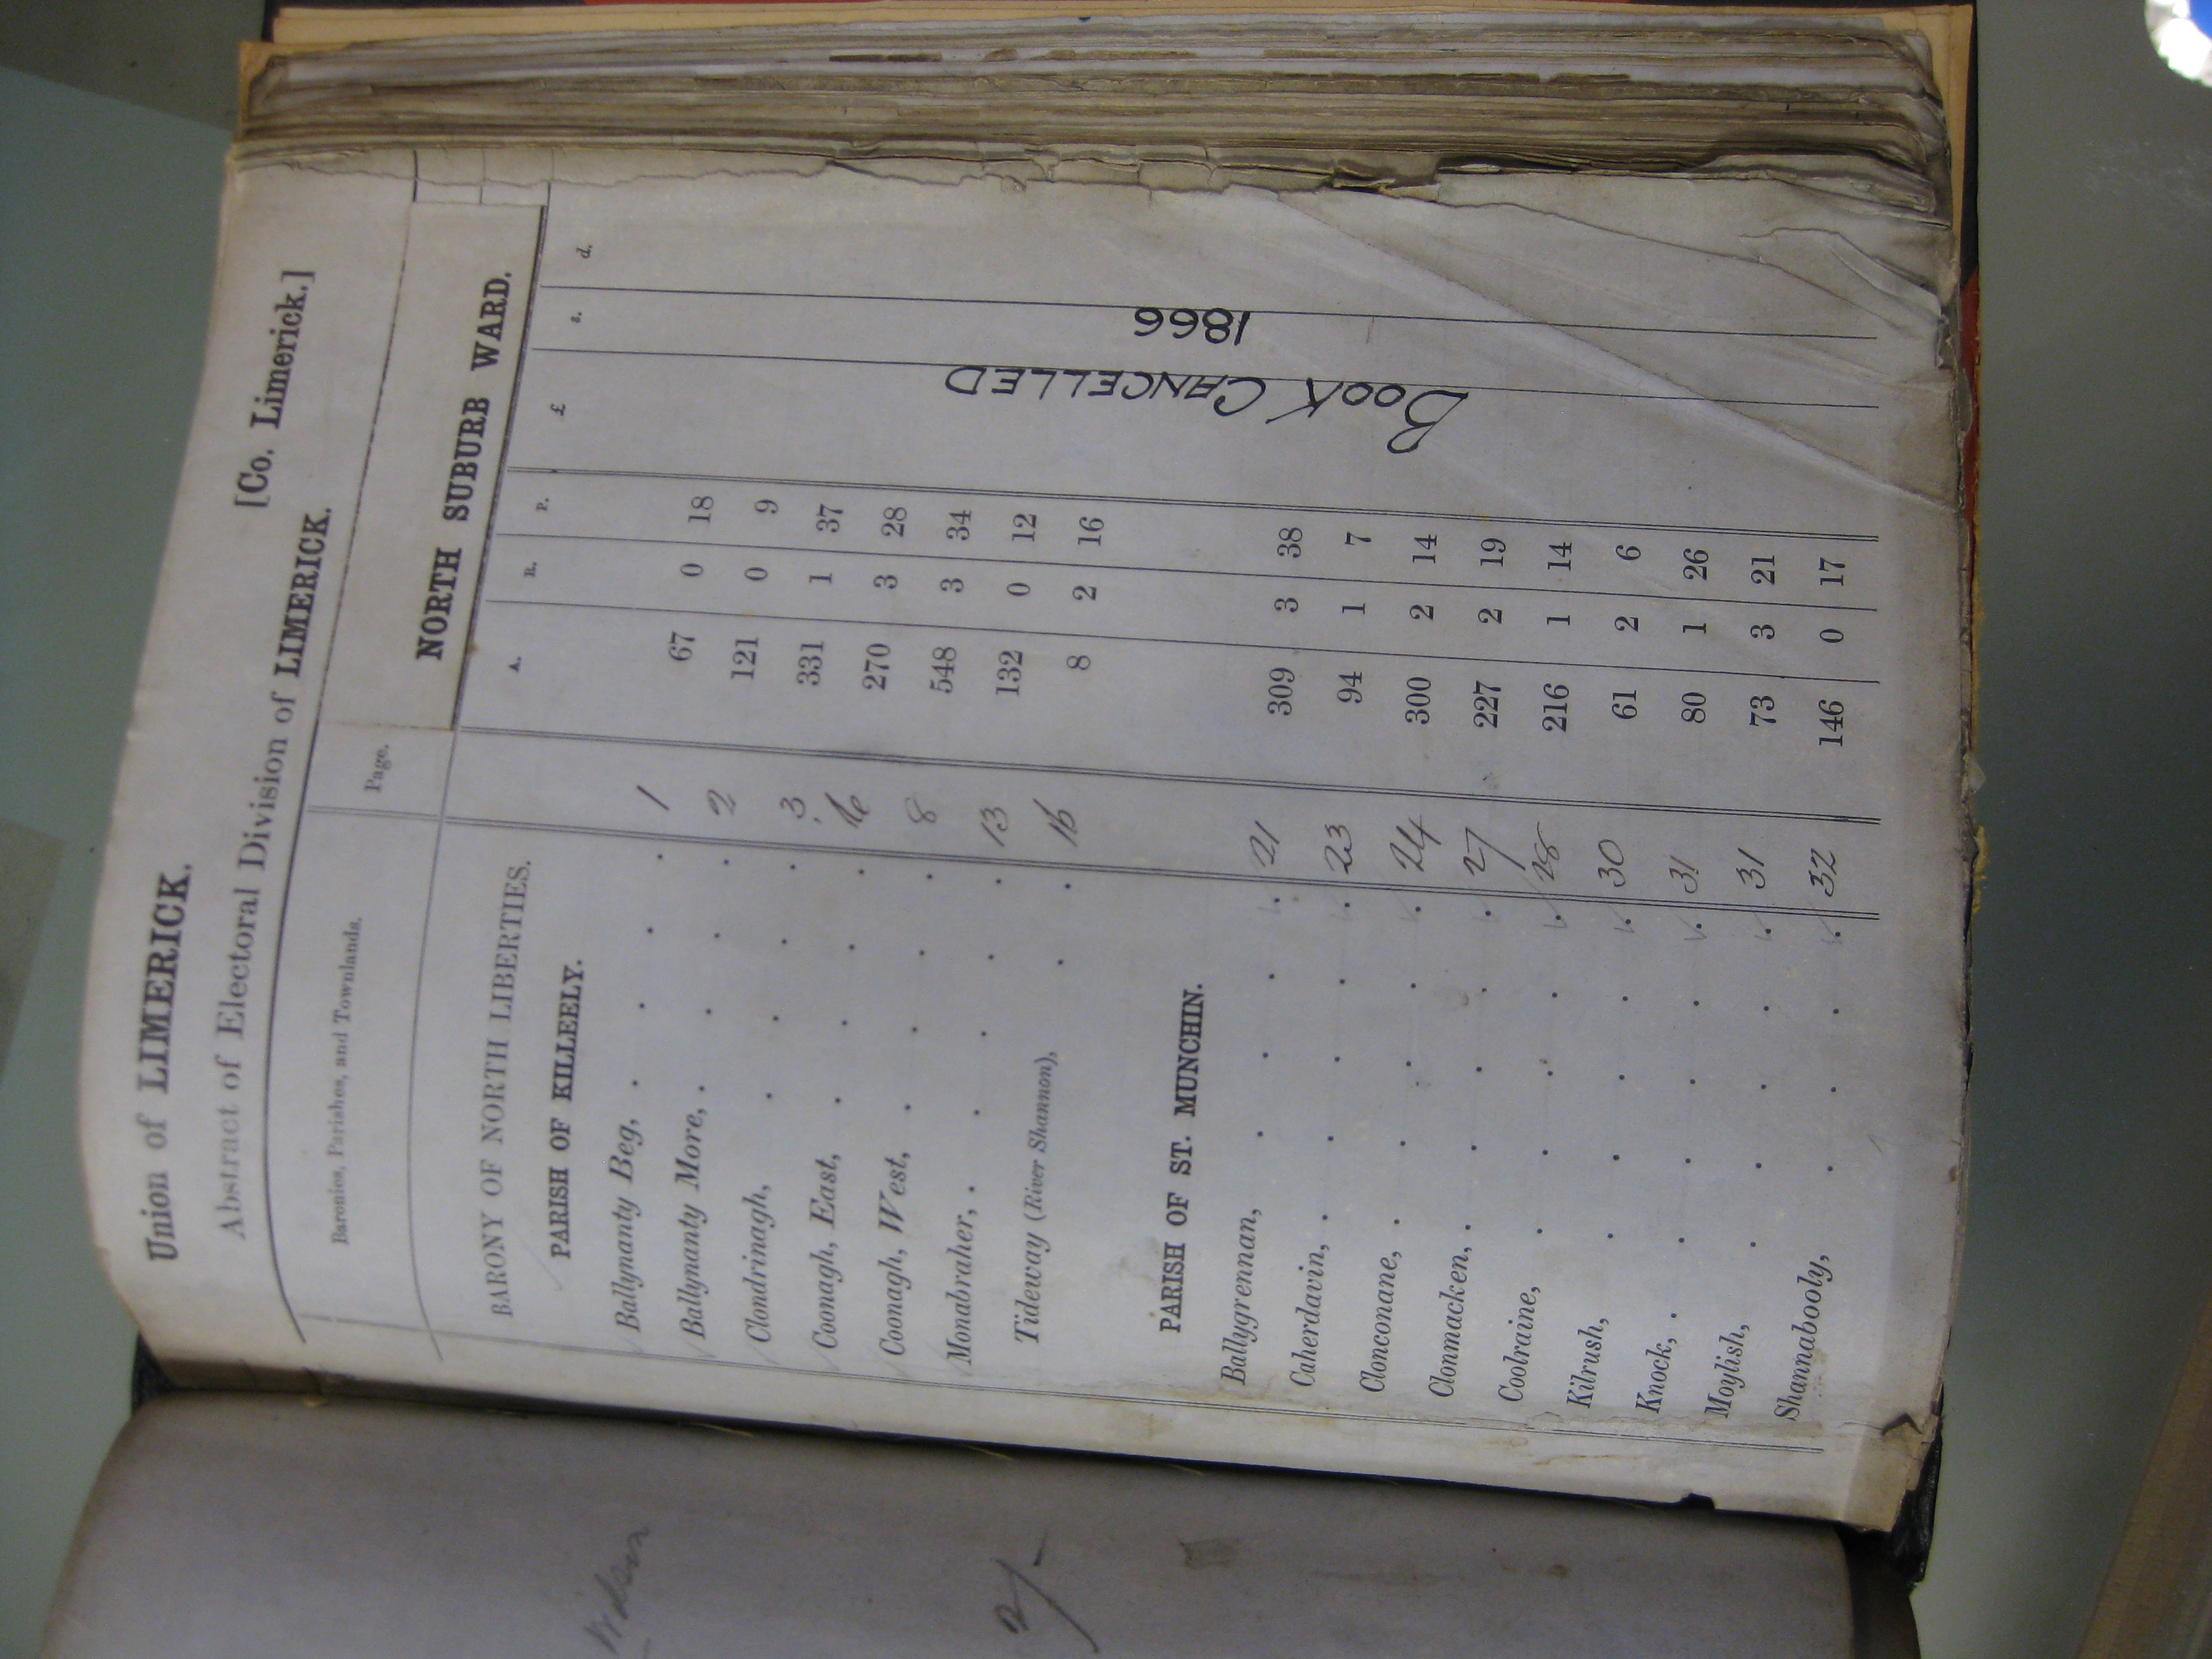 Union of LIMERICK.
[Co. Limerick.]
Abstract of Electoral Division of LIMERICK.
Baronies, Parishes, and Townlands. Page. NORTH SUBURB WARD.
A. R. P. £ s. d.
BARONY OF NORTH LIBERTIES.
PARISH OF KILLEELY.
Ballynanty Beg, . . . . 1 67 0 18
Ballynanty More, . . . . 2 121 0 9
Clondrinagh, . . . . 3 331 1 37
Coonagh, East, . . . . 6 270 3 28
Coonagh, West, . . . . 8 548 3 34
Monabraher, . . . . . 13 132 0 12
Tideway (River Shannon), . . 16 8 2 16
PARISH OF ST. MUNCHIN.
Ballygrennan, . . . . 21 309 3 38
Caherdavin, . . . . . 23 94 1 7
Clonconane, . . . . . 24 300 2 14
Clonmacken, . . . . . 27 227 2 19
Coolraine, . . . . . 28 216 1 14
Kilrush, . . . . . 30 61 2 6
Knock, . . . . . . 31 80 1 26
Moylish, . . . . . 31 73 3 21
Shannabooly, . . . . 32 146 0 17
BOOK CANCELLED
1866